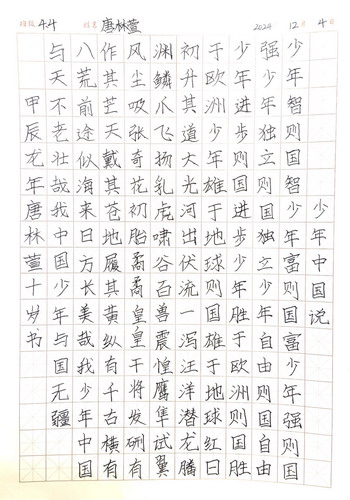 班级 4.4 姓名 唐林萱 2024 12月 4日
少年中国说
少年智则国智少年富则国富少年强则国
强少年独立则国独立少年自由则国自由
少年进步则国进步少年胜于欧洲则国胜
于欧洲少年雄于地球则国雄于地球红日
初升其道大光河出伏流一泻汪洋潜龙腾
渊鳞爪飞扬乳虎啸谷百兽震惶鹰隼试翼
风尘吸张奇花初胎矞矞皇皇干将发硎有
作其芒天戴其苍地履其黄纵有千古横有
八荒前途似海来日方长美哉我少年中国
与天不老壮哉我中国少年与国无疆
甲辰龙年唐林萱十岁书